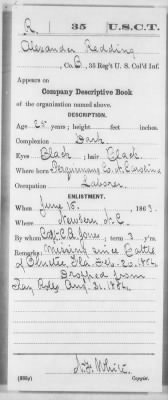 R. 35 U.S.C.T.
Alexander Redding
, Co. B, 35 Reg't U. S. Col'd Inf.
Appears on
Company Descriptive Book
of the organization named above.
DESCRIPTION.
Age 25 years; height feet inches.
Complexion Dark
Eyes Black; hair Black
Where born Perquimans Co. N. Carolina
Occupation Laborer
ENLISTMENT.
When June 15, 1863
Where Newbern N.C.
By whom Capt. C.B. Jones; term 3 y'rs.
Remarks: Missing since Battle
of Olustee, Fla. Feb. 20, 1864
Dropped from
Aug. 31, 1864
J. F. White
Copyist.